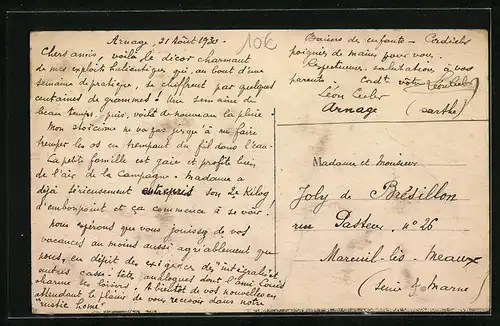 Arnage, 21 Août 1930
10€
Chers amis, voilà le décor charmant
de mes exploits halieutiques qui, au bout d'une
semaine de pratique, se chiffrent par quelques
centaines de grammes! Une semaine de
beau temps, puis, voilà de nouveau la pluie.
Mon stoïcisme ne va pas jusqu'à me faire
tremper les os en trempant du fil dans l'eau.
La petite famille est gaie et profite bien
de l'air de la Campagne. Madame a
déjà sérieusement entrepris son 2e Kilog.
d'embonpoint et ça commence à se voir.
Nous espérons que vous jouissez de vos
vacances au moins aussi agréablement que
nous, en dépit des exigences des "intégrales" et
autres casse-têtes analogues dont l'ami Louis
charme ses loisirs. A bientôt de vos nouvelles en
attendant le plaisir de vous recevoir dans notre
"rustic home".
Baisers des enfants - Cordiales
poignées de mains pour vous.
Respectueuses salutations à vos
parents. Cordt. votre
Léon
Arnage
(Sarthe)
Madame et Monsieur
Joly de Brésillon
rue Pasteur, n° 26
Mareuil-lès-Meaux
(Seine & Marne)